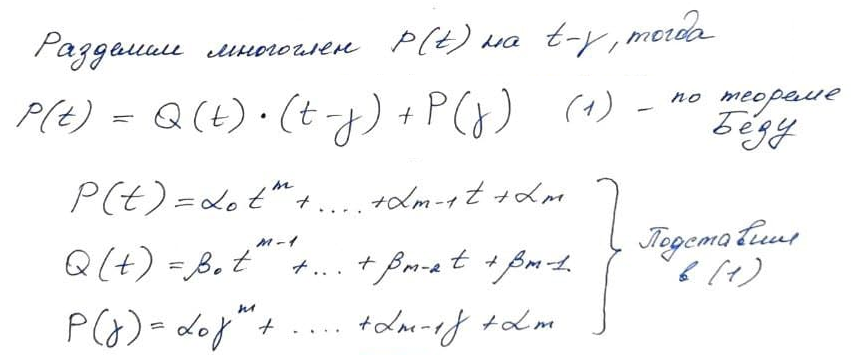 Разделим многочлен P(t) на t-γ, тогда
P(t) = Q(t)·(t-γ) + P(γ) (1) - по теореме Безу
P(t) = α₀t^m + .... + α_{m-1}t + α_m
Q(t) = β₀t^{m-1} + ... + β_{m-2}t + β_{m-1}.
P(γ) = α₀γ^m + .... + α_{m-1}γ + α_m
} Подставим
в (1)